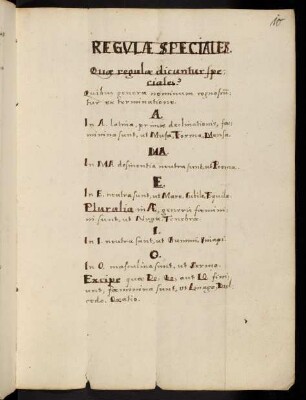 10
REGULÆ SPECIALES.
Quæ regulæ dicuntur spe-
ciales?
Quibus genera nominum cognoscun-
tur ex terminatione.
A.
In A. latina, primæ declinationis, fæ-
minina sunt, ut Musa, Forma, Mensa.
MA.
In MA desinentia neutra sunt, ut
E.
In E. neutra sunt, ut Mare, Cubile,
Pluralia in Æ, generis fæmini-
ni sunt, ut Nugæ, Tenebræ.
I.
In I. neutra sunt, ut Gummi, Sinapi.
O.
In O. masculina sunt, ut Sermo.
Excipe quæ DO, GO, aut IO fini-
unt, fæminina sunt, ut Imago, Dul-
cedo, Oratio.